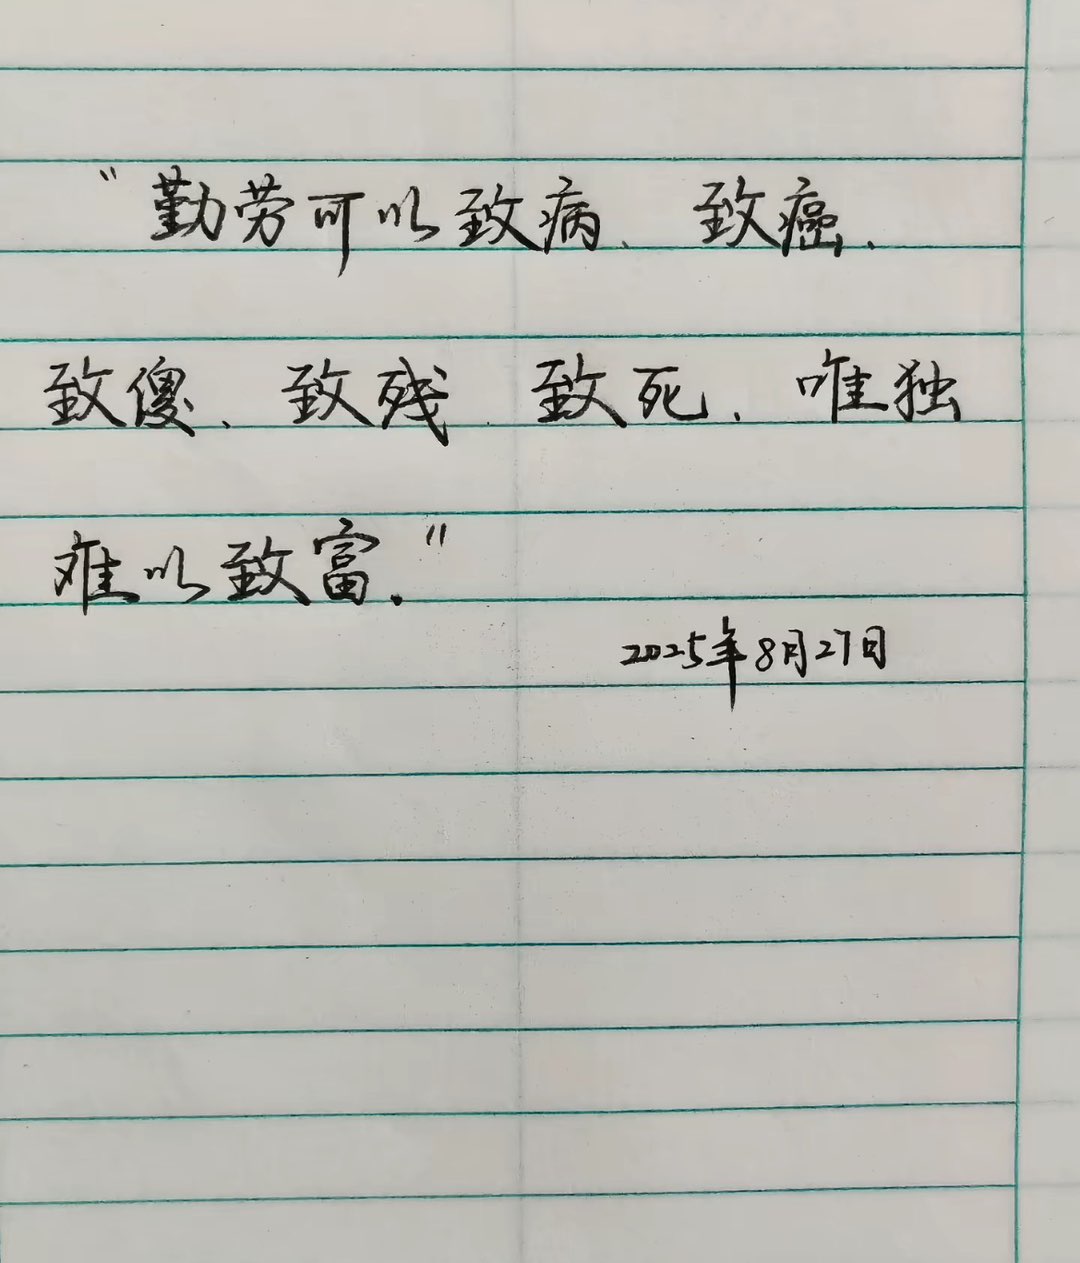 "勤劳可以致病、致癌、
致傻、致残、致死、唯独
难以致富."
2025年8月27日